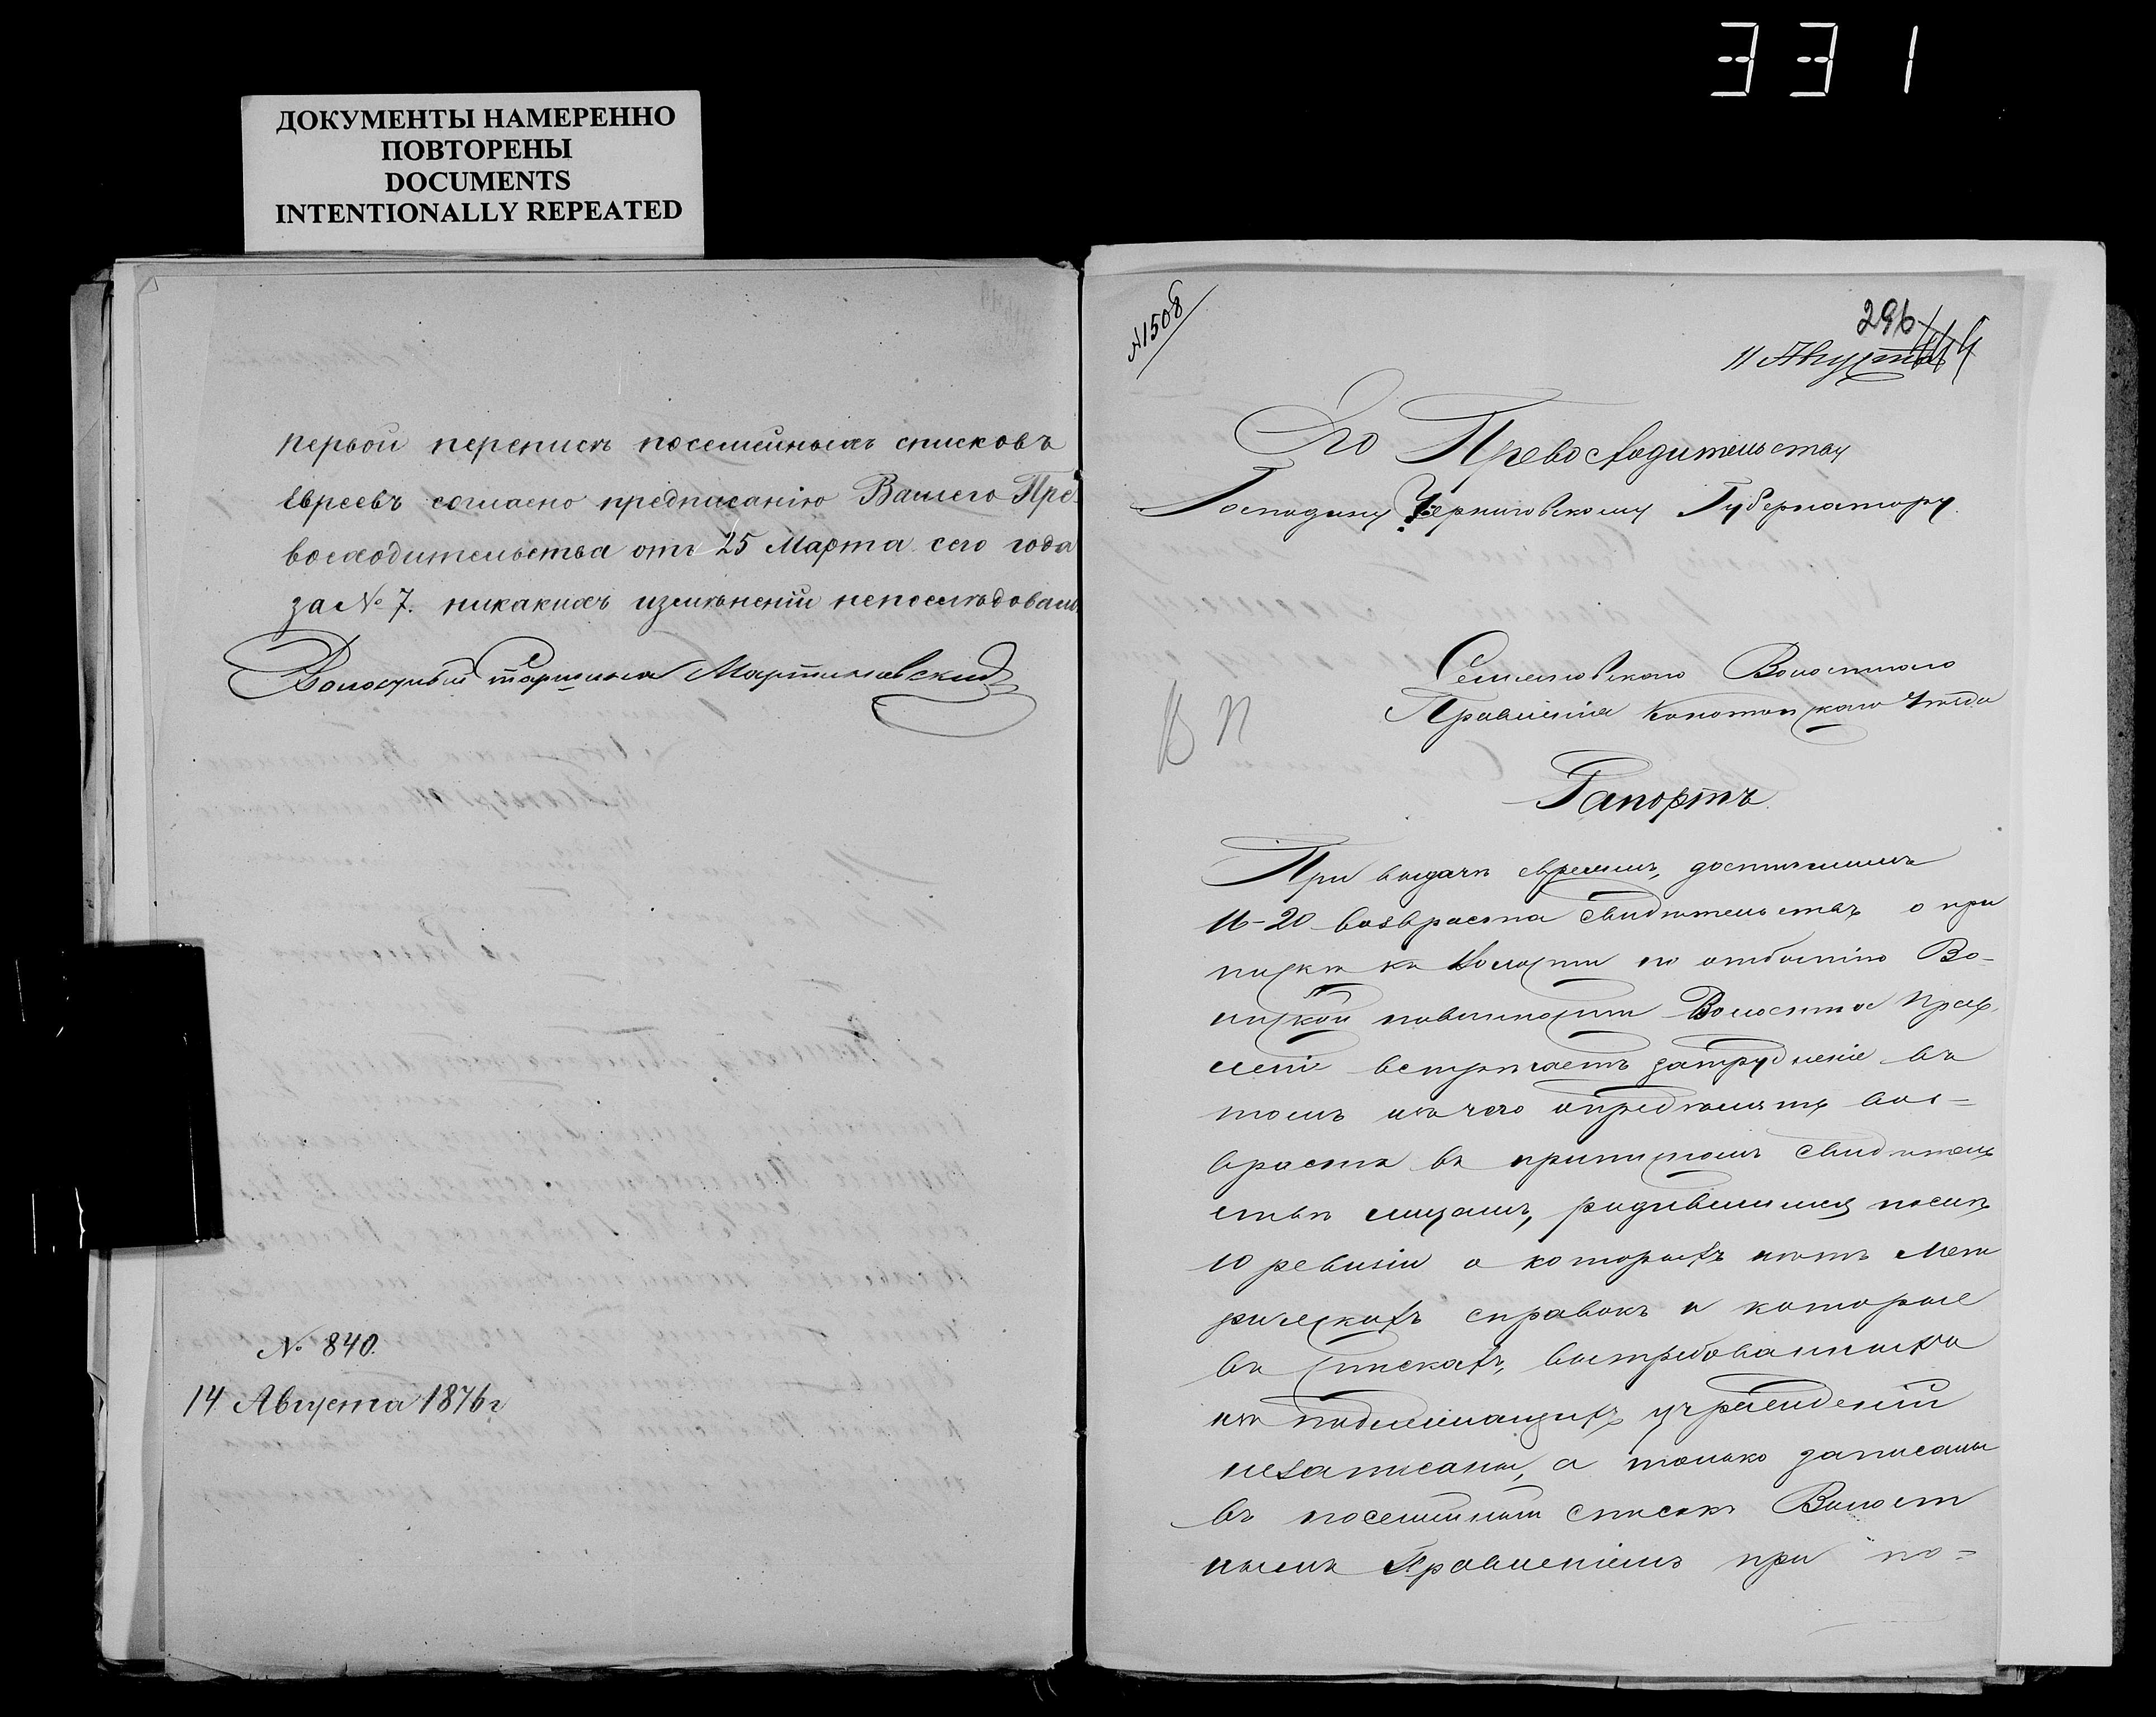 331
ДОКУМЕНТЫ НАМЕРЕННО
ПОВТОРЕНЫ
DOCUMENTS
INTENTIONALLY REPEATED
первой переписи посемейныхъ списковъ
Евреевъ согласно предписанію Вашего Пре-
восходительства отъ 25 Марта сего года
за № 7. никакихъ измѣненій непослѣдовало
Волостный Старшина Мартиновский
№ 840.
14 Августа 1876 г
А1508
296
11 Августа
Его Превосходительству
Господину Черниговскому Губернатору.
Семеновскаго Волостнаго
Правленія Конотопскаго Уѣзда
ВП
Рапортъ.
При выдачѣ евреямъ, достигшимъ
16-20 возвраста свидѣтельствъ о при
пискѣ къ волости по отбытію Во-
инской повинности Волостное Прав
леніе встрѣчаетъ затрудненіе въ
томъ изъ чего опредѣлять воз=
врастъ въ приписномъ свидѣтель
ствѣ лицамъ, родившимся послѣ
10 ревизіи о которыхъ нѣтъ Мет
рическихъ справокъ и которые
въ спискахъ, вытребованныхъ
изъ подлежащихъ учрежденій
незаписаны, а только записаны
въ посемейный списокъ Волост
нымъ Правленіемъ при по=